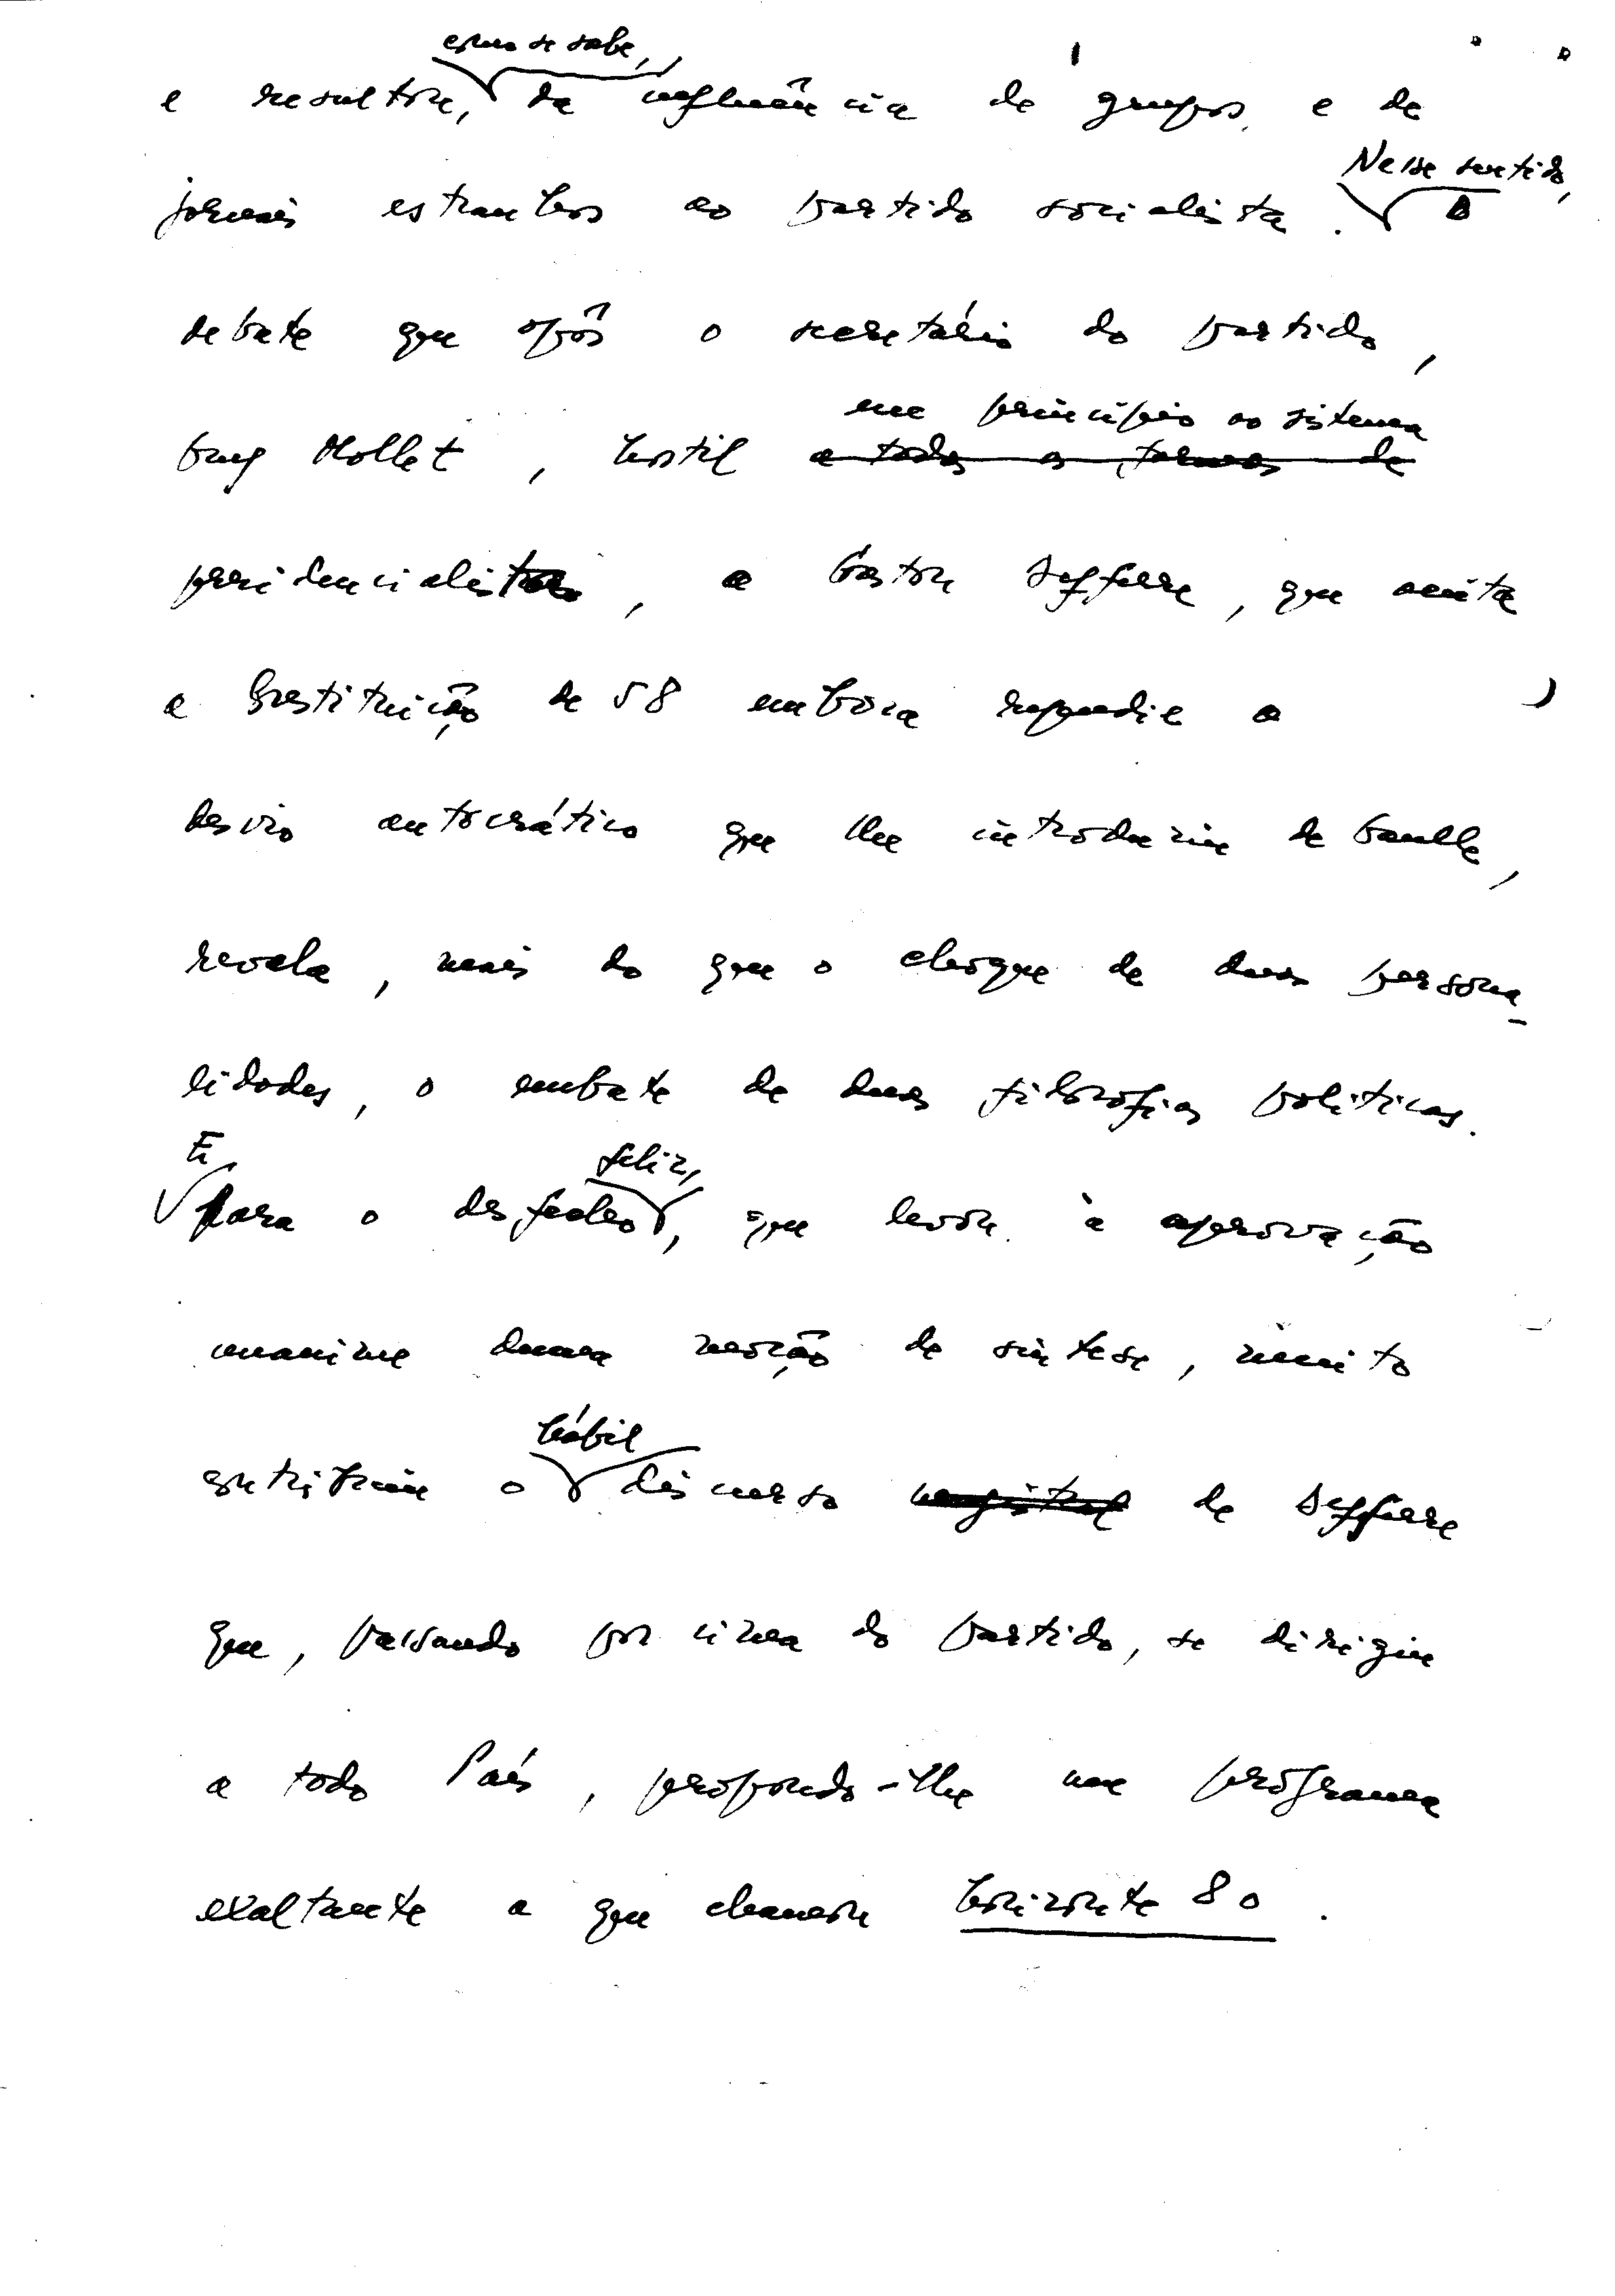 como se sabe,
e resultou, da influência de grupos e de
Nesse sentido,
jornais estranhos ao partido socialista. o
debate que opôs o secretário do partido,
em princípio ao sistema
Guy Mollet, hostil a todas as formas de
presidencialista, a Gaston Defferre, que aceita
a Constituição de 58 embora repudie o
desvio autocrático que lhe introduziu de Gaulle,
revela, mais do que o choque de duas persona-
lidades, o embate de duas filosofias políticas.
E feliz,
para o desfecho, que levou à aprovação
unanime duma moção de síntese, muito
hábil
contribuiu o discurso magistral de Defferre
que, passando por cima do partido, se dirigiu
a todo País, propondo-lhe um programa
exaltante a que chamou horizonte 80.